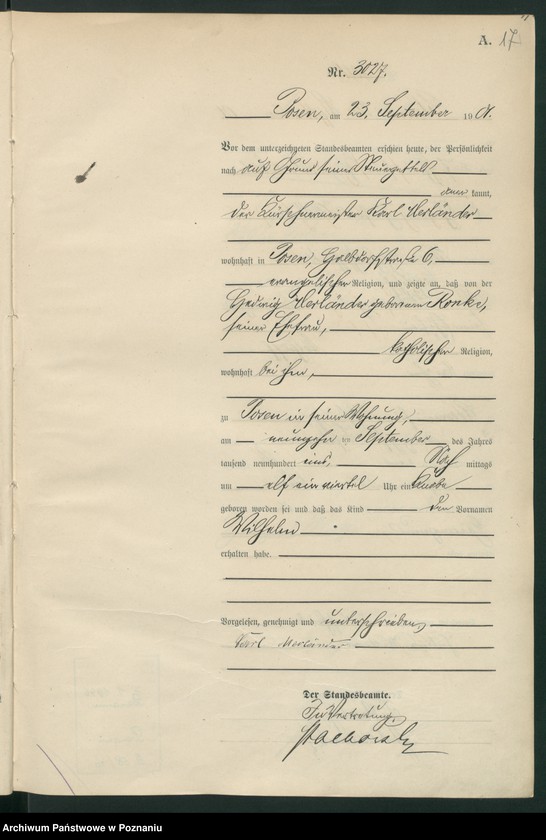 A. 17
Nr. 3027.
Posen, am 23. September 190
Vor dem unterzeichneten Standesbeamten erschien heute, der Persönlichkeit
nach auf Grund seines Steuerzettels
kannt,
der Kürschnermeister Karl
wohnhaft in Posen, 6,
evangelischer Religion, und zeigte an, daß von der
Hedwig geborenen Ronke,
seiner Ehefrau,
katholischer Religion,
wohnhaft bei ihm,
zu Posen in seiner Wohnung,
am neunzehn ten September des Jahres
tausend neunhundert eins, Nach mittags
um elf einviertel Uhr ein Knabe
geboren worden sei und daß das Kind den Vornamen
Wilhelm
erhalten habe.
Vorgelesen, genehmigt und unterschrieben
Karl
Der Standesbeamte.
In Vertretung.
Archiwum Państwowe w Poznaniu